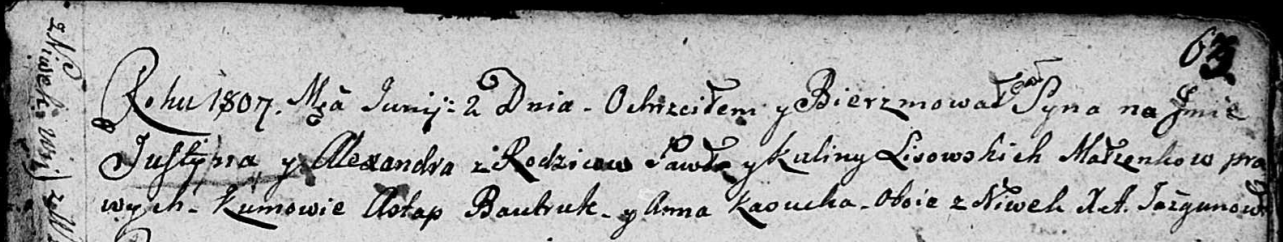 63
z Niwek
Roku 1807. Mca Junij: 2 Dnia - Ochrzciłem y Bierzmował Syna na Jmie
Justyna y Alexandra z Rodzicow Pawła y Kuliny Lisowskich Małzenkow pra
wych - Kumowie Astap Bautruk - y Anna Kasucha - Oboie z Niwek